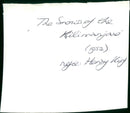 The Snows of the
Kilimanjaro
(1952)
Henry King